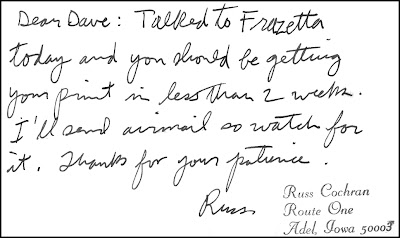 Dear Dave: Talked to Frazetta
today and you should be getting
your print in less than 2 weeks.
I'll send airmail so watch for
it. Thanks for your patience.
Russ
Russ Cochran
Route One
Adel, Iowa 50003